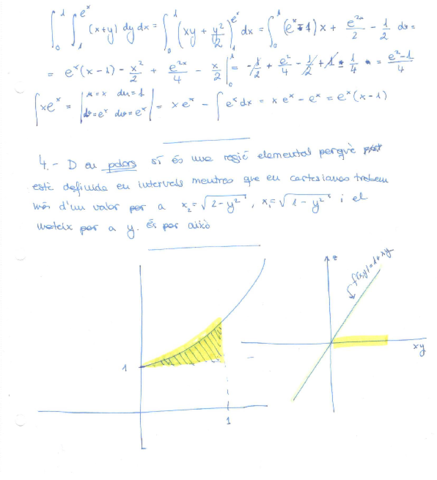 ∫₀¹ ∫₁^{eˣ} (x+y) dy dx = ∫₀¹ (xy + y²/2)₁^{eˣ} dx = ∫₀¹ (eˣ-1)x + e²ˣ/2 - 1/2 dx =
= eˣ(x-1) - x²/2 + e²ˣ/4 - x/2 |₀¹ = -1/2 + e²/4 - 1/2 + 1 - 1/4 = e²-1/4
∫xeˣ = | u=x du=1 dv=eˣ v=eˣ | = xeˣ - ∫eˣdx = xeˣ - eˣ = eˣ(x-1)
4.- D en polars sí és una regió elemental perquè
està definida en intervals mentres que en cartesianes trobem
més d'un valor per a x₂=√2-y², x₁=√1-y² i el
mateix per a y. És per això
1
1
z
f(x,y)=
xy